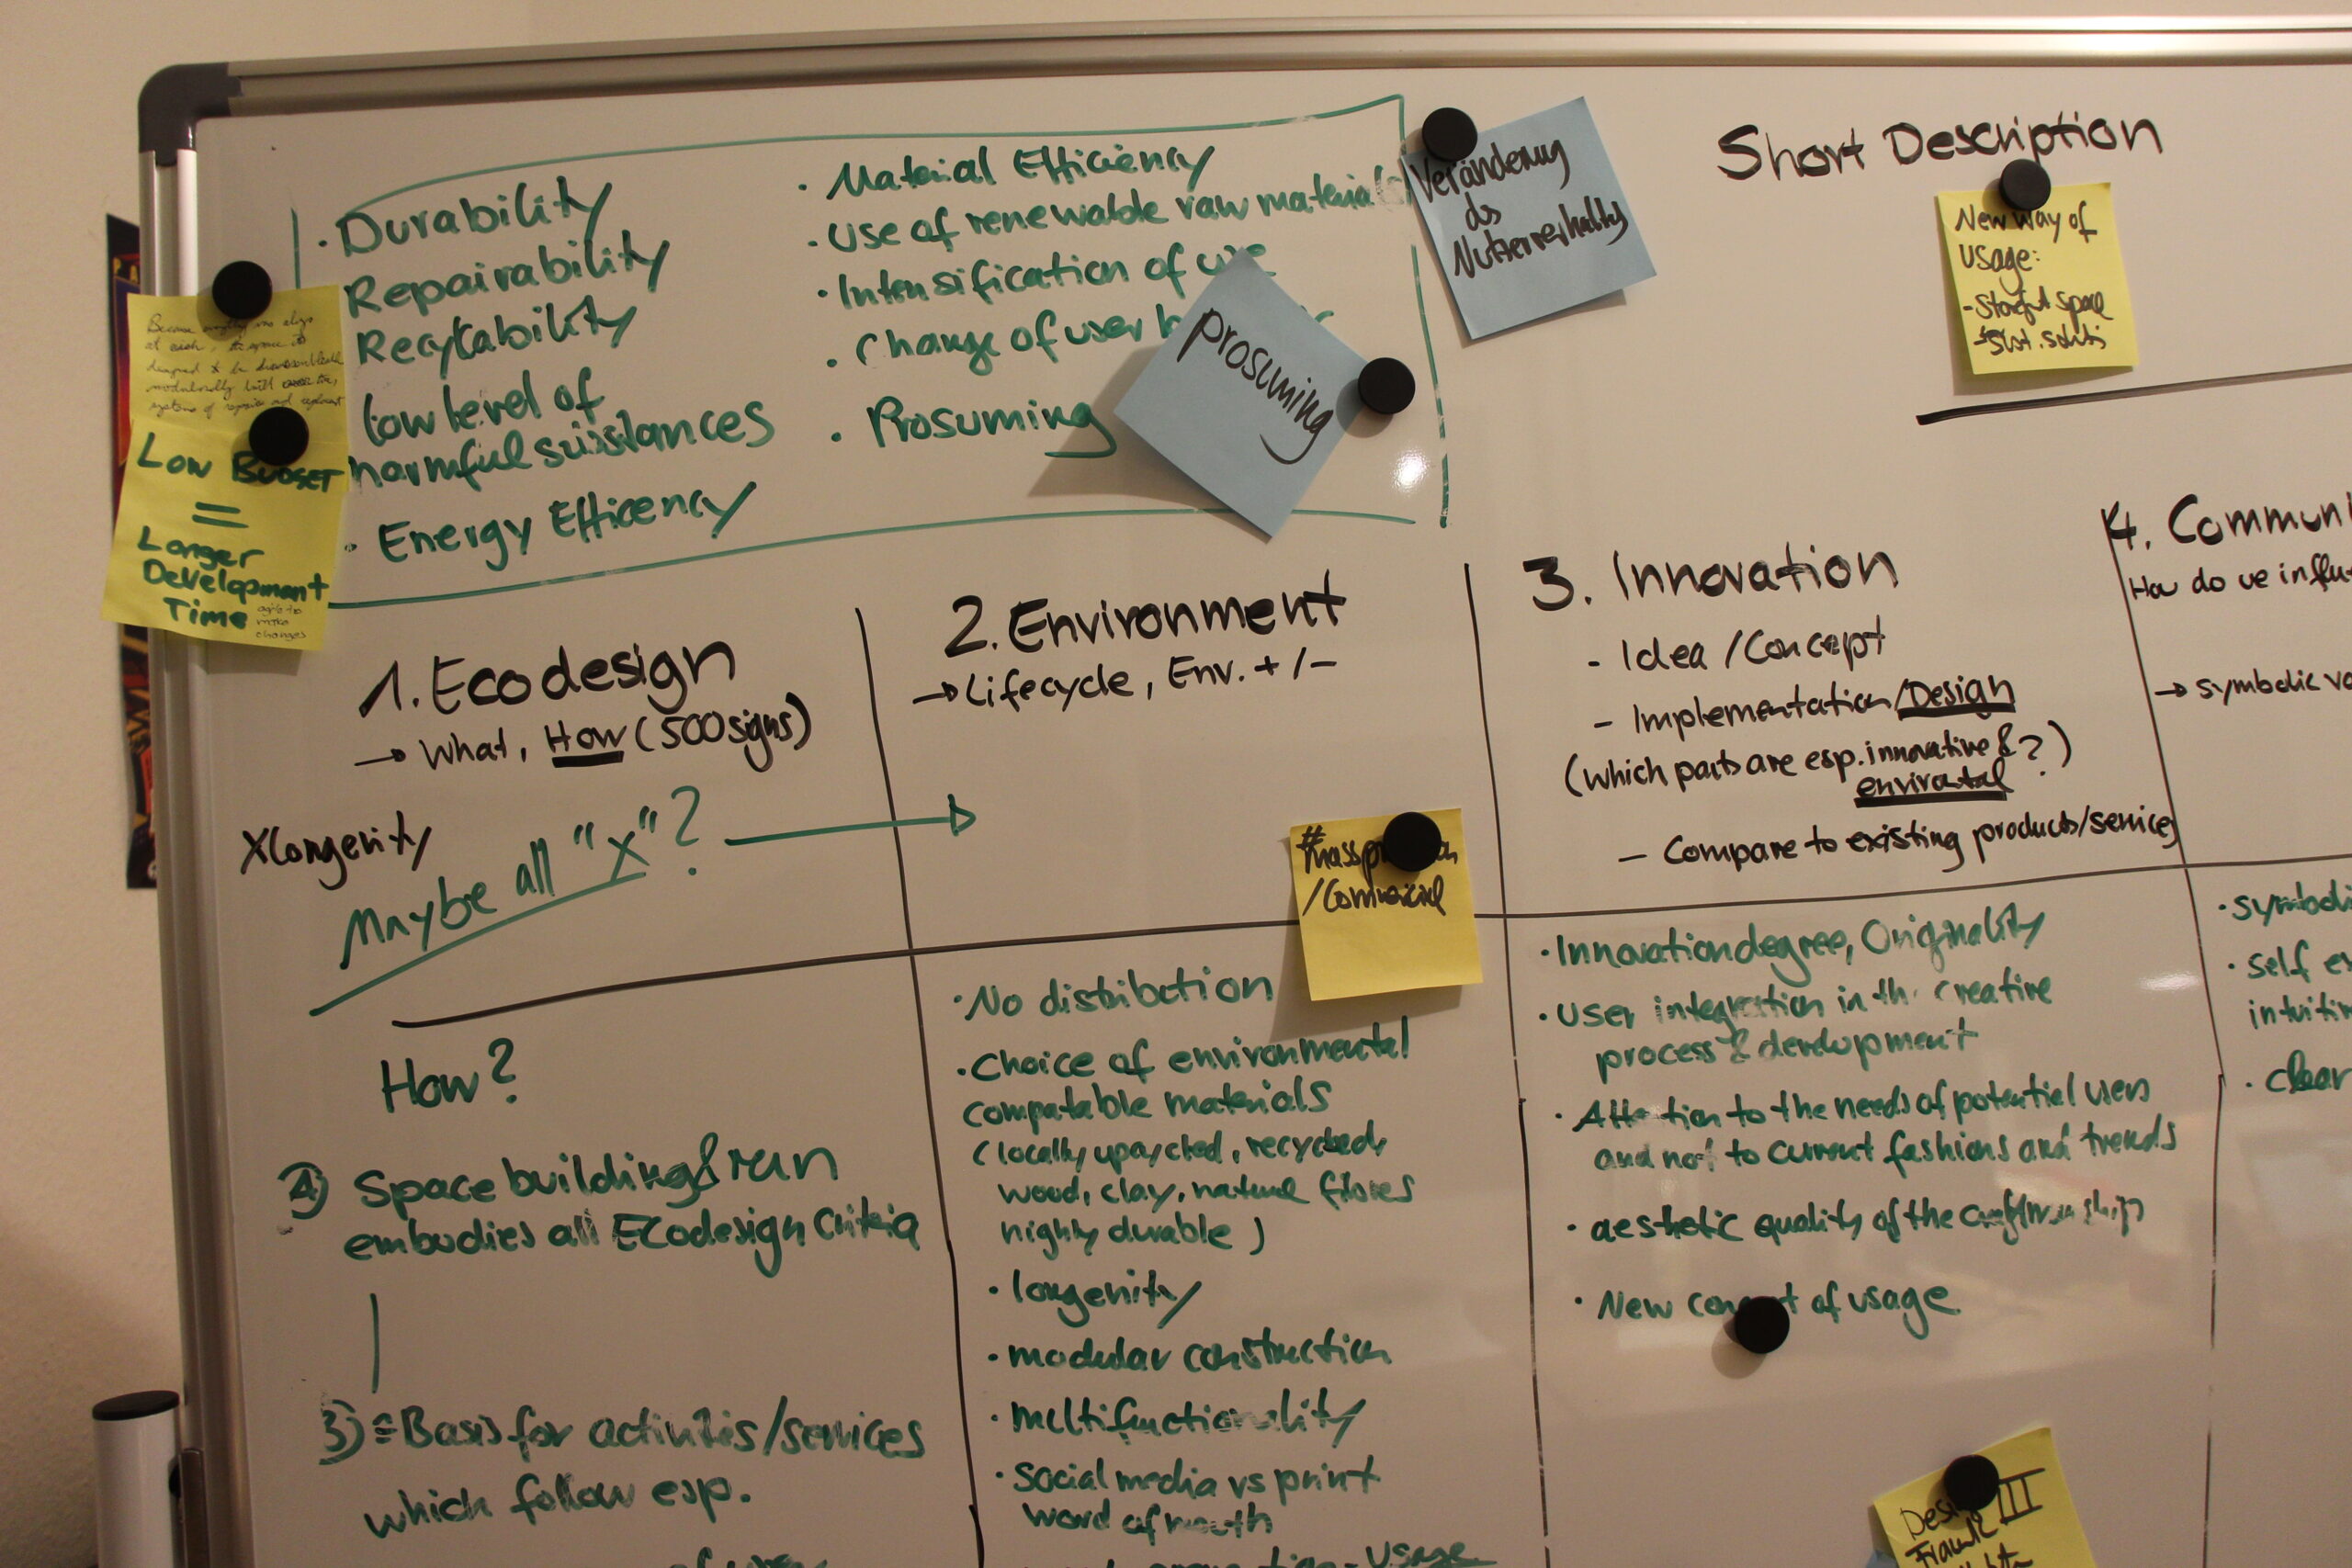 · Durability
Repairability
Recyclability
low level of
harmful substances
· Energy Efficency
· Material Efficiency
· Use of renewable raw material(s)
· Intensification of use
· Change of user
· Prosuming
prosuming
Veränderung
des
Nutzerverhaltens
Short Description
New Way of
Usage:
LOW BUDGET
=
Longer
Development
Time
make
changes
1. Ecodesign
→ What, How (500 signs)
X Longenity
Maybe all "X"?
2. Environment
→ Lifecycle, Env. + / -
#
/Comercial
3. Innovation
- Idea / Concept
- Implementation/Design
(which parts are esp. innovative & ?)
- Compare to existing products/services
4. Communi
How do we influ
→ symbolic va
How?
Space building & run
embodies all Ecodesign Criteria
3) = Basis for activities/services
which follow esp.
· No distribution
· Choice of environmental
compatable materials
(locally upcycled, recycled,
wood, clay, natural fibres
highly durable)
· longenity
· modular construction
· multifunctionality
· social media vs print
word of mouth
- Usage
· Innovationdegree, Originality
· User integration in the creative
process & development
· Attention to the needs of potential users
and not to current fashions and trends
· aesthetic quality of the
· New concept of usage
· symboli
· self ex
intuitiv
· clear
III